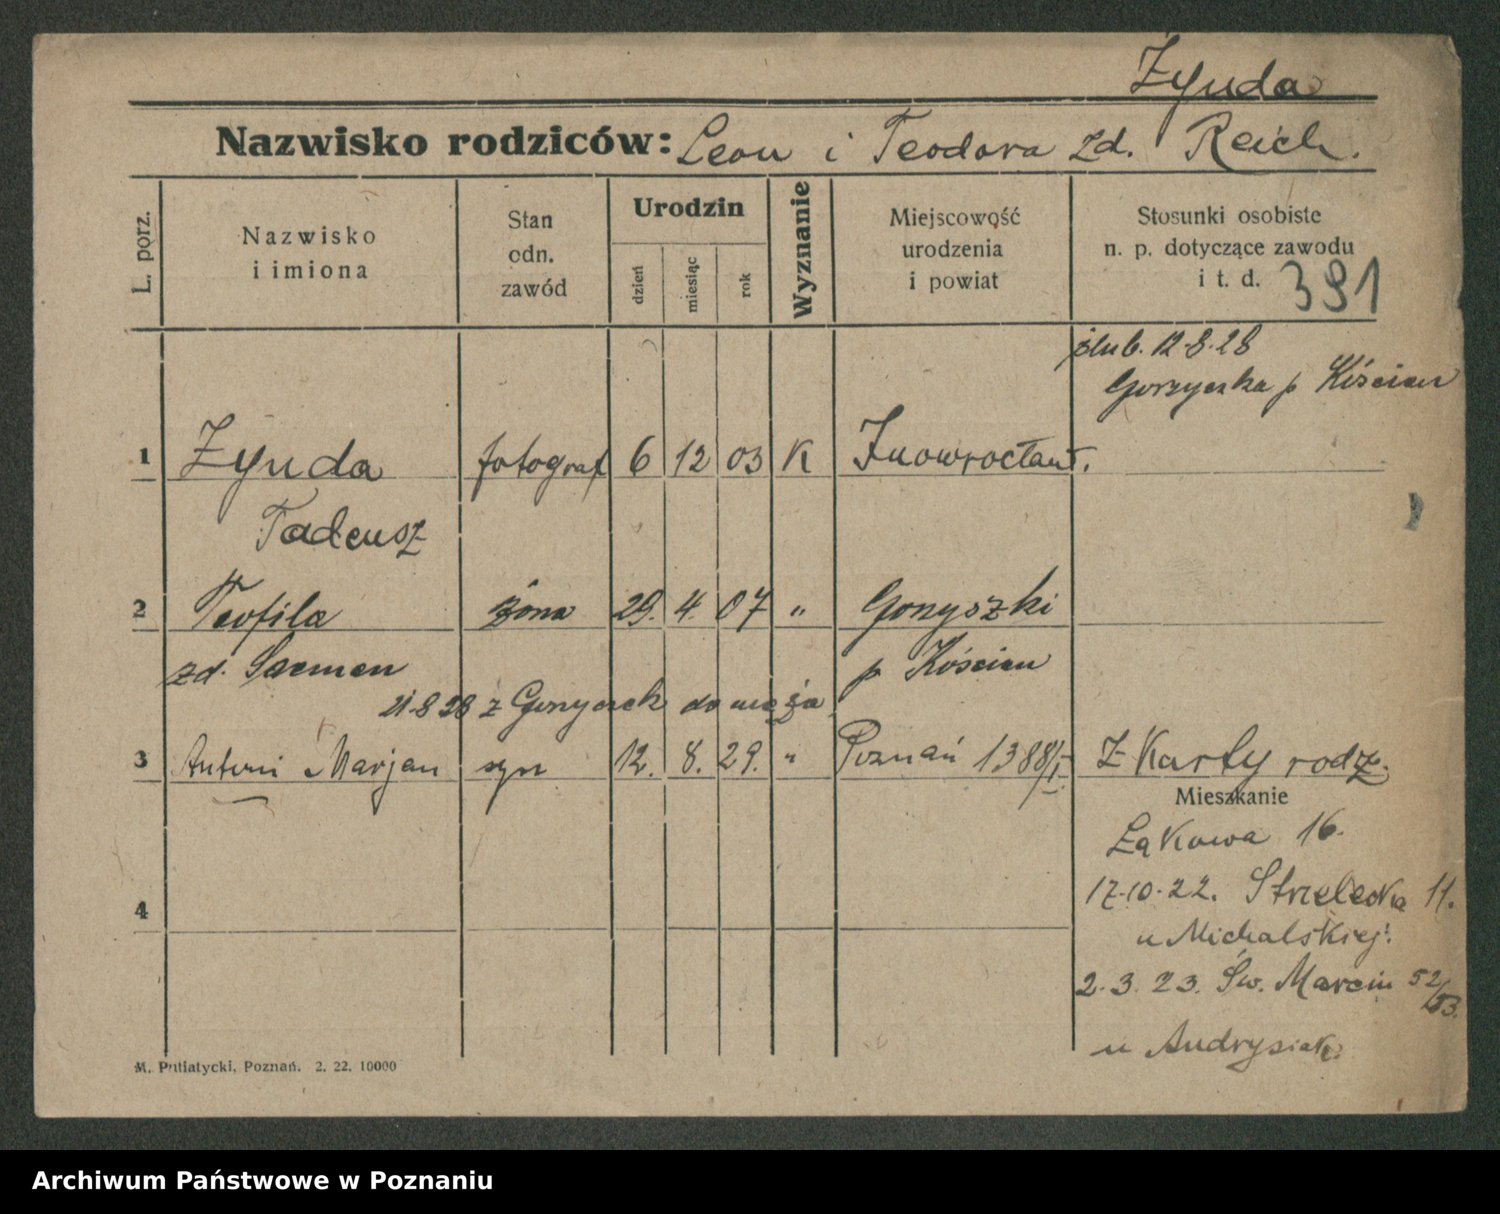 Zynda
Nazwisko rodziców: Leon i Teodora zd. Reich.
L. porz.
Nazwisko i imiona
Stan odn. zawód
Urodzin
dzień
miesiąc
rok
Wyznanie
Miejscowość urodzenia i powiat
Stosunki osobiste
n. p. dotyczące zawodu
i t. d. 391
ślub. 12-8-28
Gorzyczka p Kościan
1 Zynda fotograf 6 12 03 K Inowrocław.
Tadeusz
2 Teofila żona 29. 4. 07 " Gonyszki
zd. p Kościan
21-8 28 z do męża
3 Antoni Marjan syn 12. 8. 29. " Poznań 1388/I. Z Karty rodz.
Mieszkanie
Łąkowa 16.
17-10-22. Strzelecka 11.
u Michalskiej.
4
2. 3. 23. Św. Marcin 52/53.
u Andrysiak
M. Putiatycki, Poznań. 2. 22. 10000
Archiwum Państwowe w Poznaniu